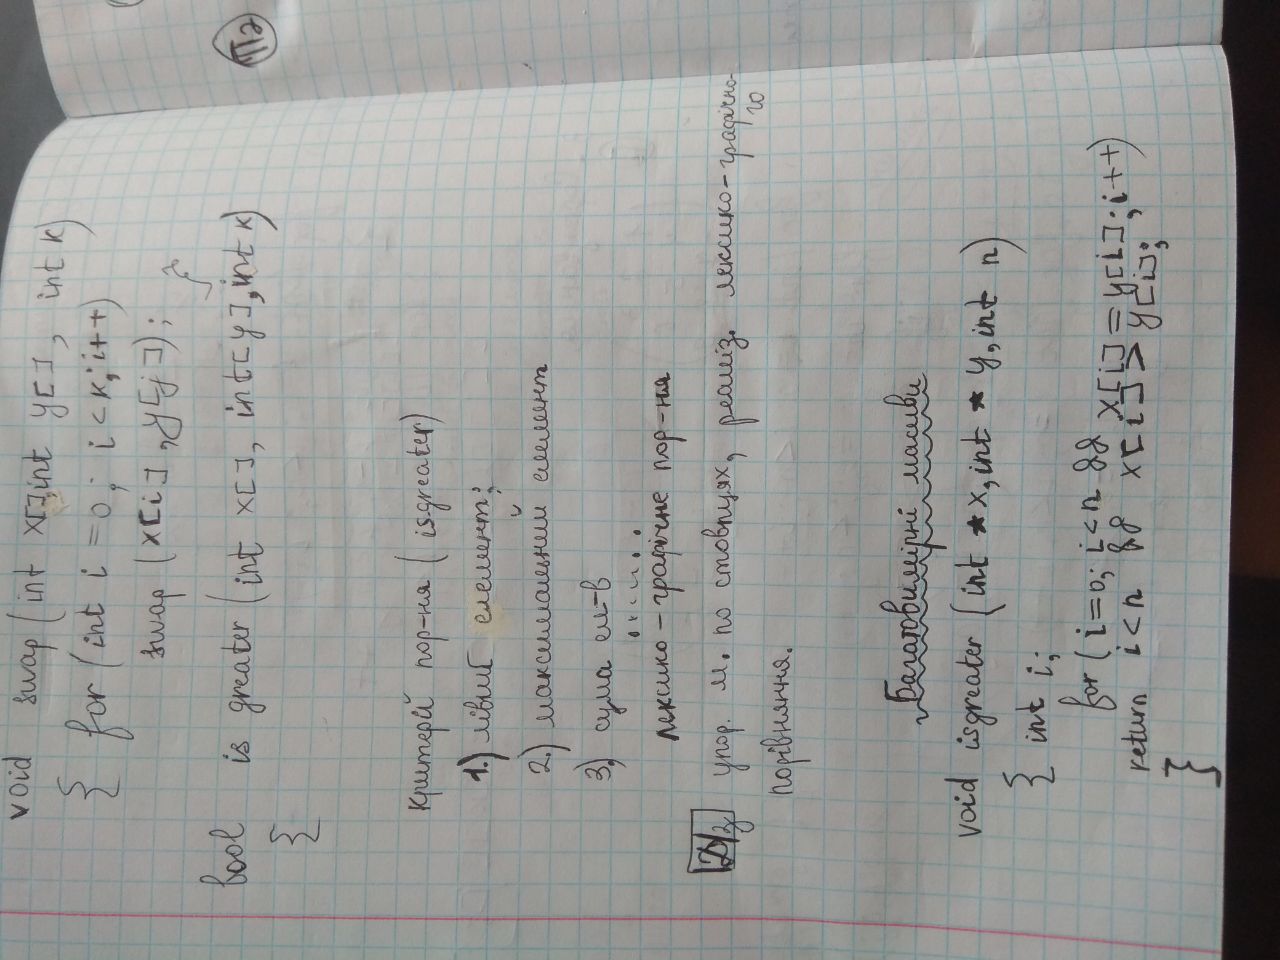 void swap (int x[], int y[], int k)
{ for (int i = 0; i < k; i++)
swap (x[i], y[j]);
}
bool is greater (int x[], int[y], int k)
{
Критерій пор-ня (isgreater)
1.) лівий елемент;
2.) максимальний елемент
3.) сума ел-в
лексико-графічне пор-ня
Д/з упор. м. по стовпцях, реаліз. лексико-графічно-
го
порівняння.
Багатовимірні масиви
void isgreater (int * x, int * y, int n)
{ int i;
for (i=0; i<n &&
x[i] = y[i]; i++)
return i<n && x[i] > y[i];
}
П2